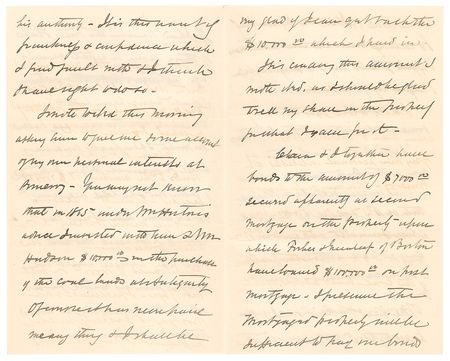 his authority – It is this want of
frankness & confidence which
I find fault with & I think
I have right to do so –
I wrote to Ed this morning
asking him to give me some account
of my own personal interests at
You may not know
that in 1865 under Wm
advice I invested with him & Mr
Hudson $10,000 00 in the purchase
of the coal lands
Of course it has never paid
me any thing & I shall be
my glad if I can get back the
$10,000 00 which I paid in.
It is concerning this account I
wrote Ed. as I should be glad
to sell my share in the property
for what I gave for it –
Clara & I together have
bonds to the amount of $7000 00
secured apparently as second
mortgage on the property upon
which Forbes & of Boston
have loaned $100,000 00 on first
mortgage – I presume the
mortgaged property will be
sufficient to pay our bonds